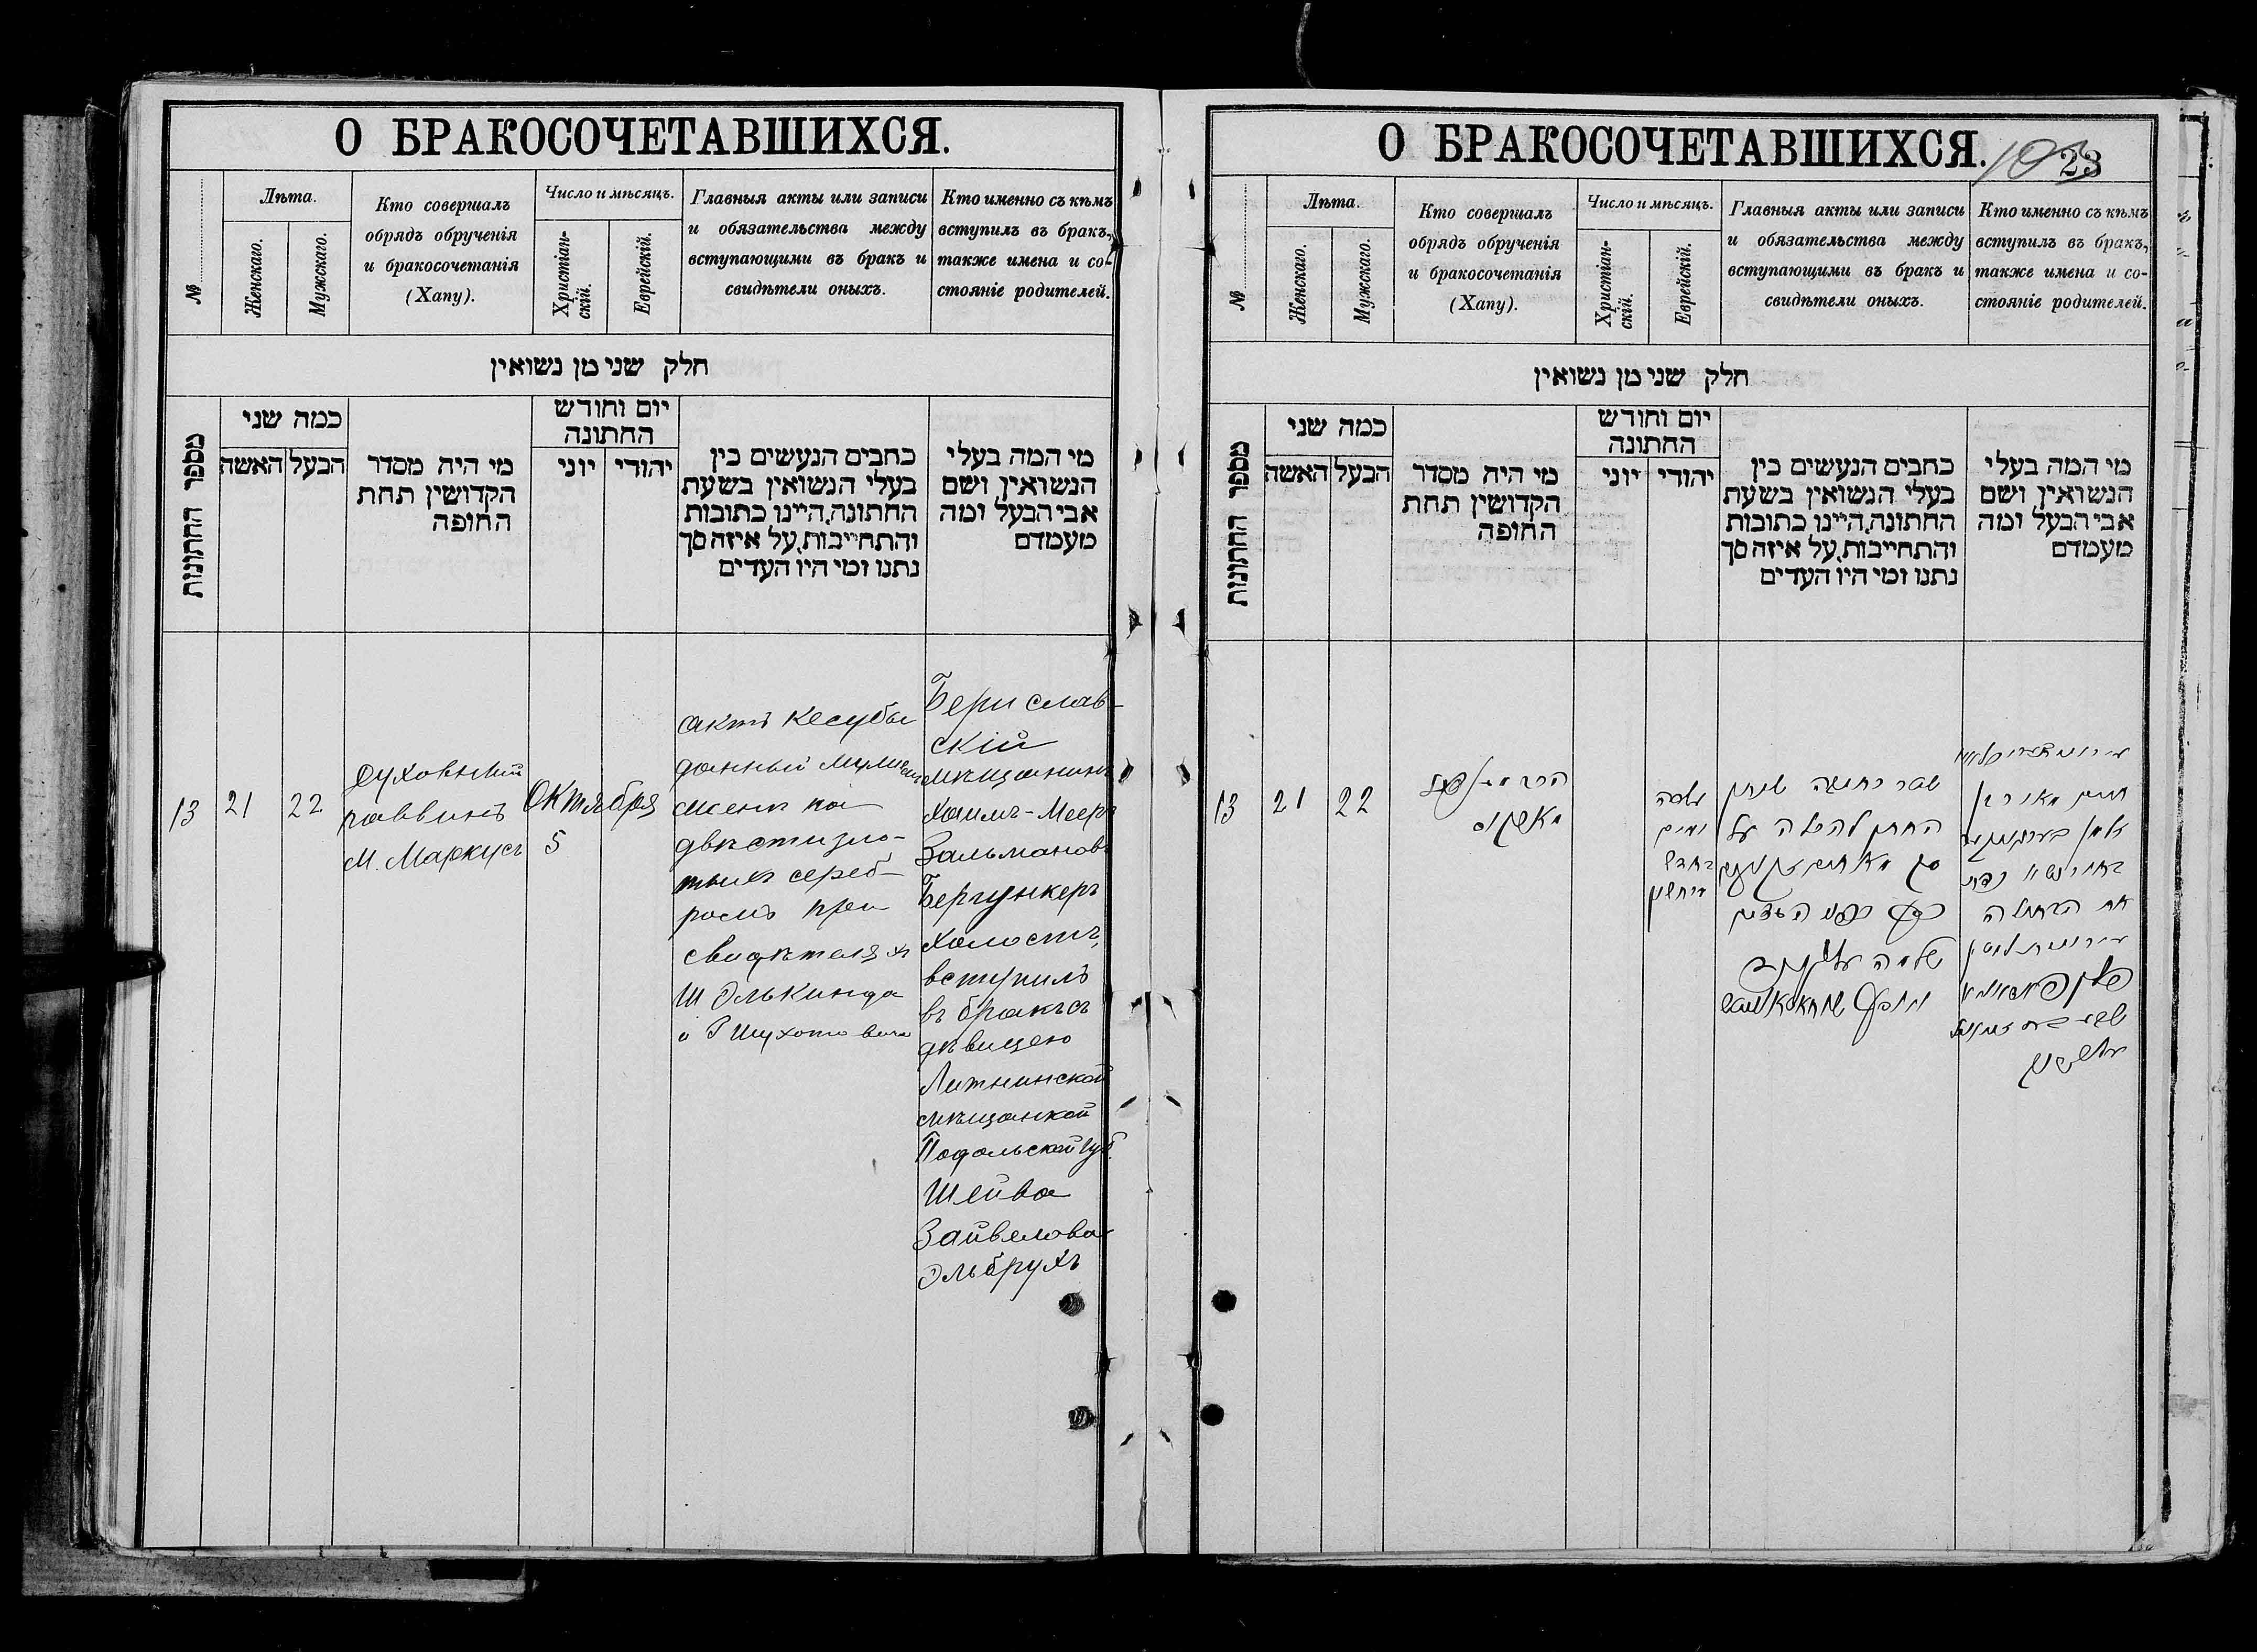 О БРАКОСОЧЕТАВШИХСЯ.
№
Лѣта.
Женскаго.
Мужскаго.
Кто совершалъ
обрядъ обрученія
и бракосочетанія
(Хапу).
Число и мѣсяцъ.
Христіан-
скій.
Еврейскій.
Главныя акты или записи
и обязательства между
вступающими въ бракъ и
свидѣтели оныхъ.
Кто именно съ кѣмъ
вступилъ въ бракъ,
также имена и со-
стояніе родителей.
חלק שני מן נשואין
מספר החתונות
כמה שני
האשה
הבעל
מי היה מסדר
הקדושין תחת
החופה
יום וחודש
החתונה
יוני
יהודי
כתבים הנעשים בין
בעלי הנשואין בשעת
החתונה, היינו כתובות
והתחייבות, על איזה סך
נתנו ומי היו העדים
מי המה בעלי
הנשואין ושם
אבי הבעל ומה
מעמדם
13
21
22
Духовный
раввинъ
М. Маркусъ
Октября
5
актъ кесубы
данный мужемъ
женѣ на
двѣсти зло-
тыхъ сереб-
ромъ при
свидѣтеляхъ
Ш Элькинда
и
Берислав-
скій
мѣщанинъ
Хаимъ-Мееръ
Зальмановъ
Бергункеръ
холостъ,
вступилъ
въ бракъ съ
дѣвицею
Литнинской
мѣщанкой
Подольской губ.
Шейва
Зайвелова
Эльбрухъ
О БРАКОСОЧЕТАВШИХСЯ.
23
№
Лѣта.
Женскаго.
Мужскаго.
Кто совершалъ
обрядъ обрученія
и бракосочетанія
(Хапу).
Число и мѣсяцъ.
Христіан-
скій.
Еврейскій.
Главныя акты или записи
и обязательства между
вступающими въ бракъ и
свидѣтели оныхъ.
Кто именно съ кѣмъ
вступилъ въ бракъ,
также имена и со-
стояніе родителей.
חלק שני מן נשואין
מספר החתונות
כמה שני
האשה
הבעל
מי היה מסדר
הקדושין תחת
החופה
יום וחודש
החתונה
יוני
יהודי
כתבים הנעשים בין
בעלי הנשואין בשעת
החתונה, היינו כתובות
והתחייבות, על איזה סך
נתנו ומי היו העדים
מי המה בעלי
הנשואין ושם
אבי הבעל ומה
מעמדם
13
21
22
הרב
מארקוס
עשרה
ימים
בחדש
שטר כתובה שנתן
החתן להכלה על
סך מאתים זהובים
כסף בפני העדים
שלמה
חיים מאיר בן
זלמן
את הבתולה